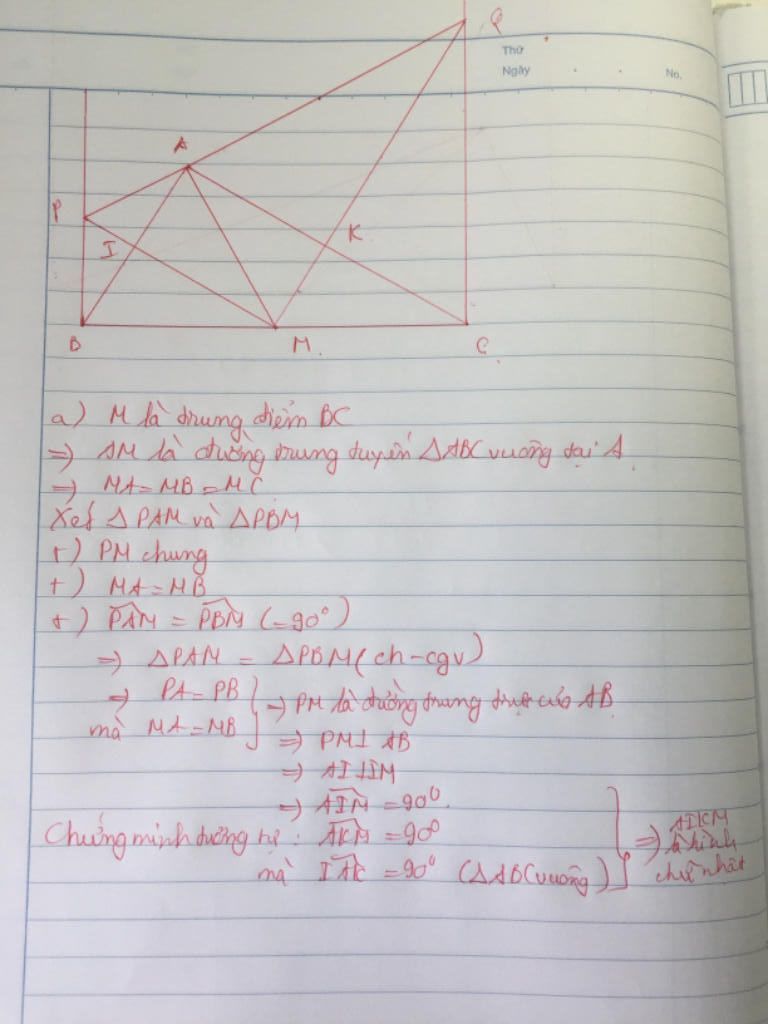 Q
Thứ
Ngày
No.
A
P
I
K
B
M
C
a) M là trung điểm BC
=> AM là đường trung tuyến ΔABC vuông tại A.
=> MA = MB = MC
Xét ΔPAM và ΔPBM
+) PM chung
+) MA = MB
+) PAM = PBM (=90°)
=> ΔPAM = ΔPBM (ch-cgv)
=> PA = PB
mà MA = MB
=> PM là đường trung trực của AB
=> PM⊥ AB
=> AI⊥IM
=> AIM = 90°.
Chứng minh tương tự: AKM = 90°
mà IAK = 90° (ΔABC vuông)
=> AIKM là hình chữ nhật